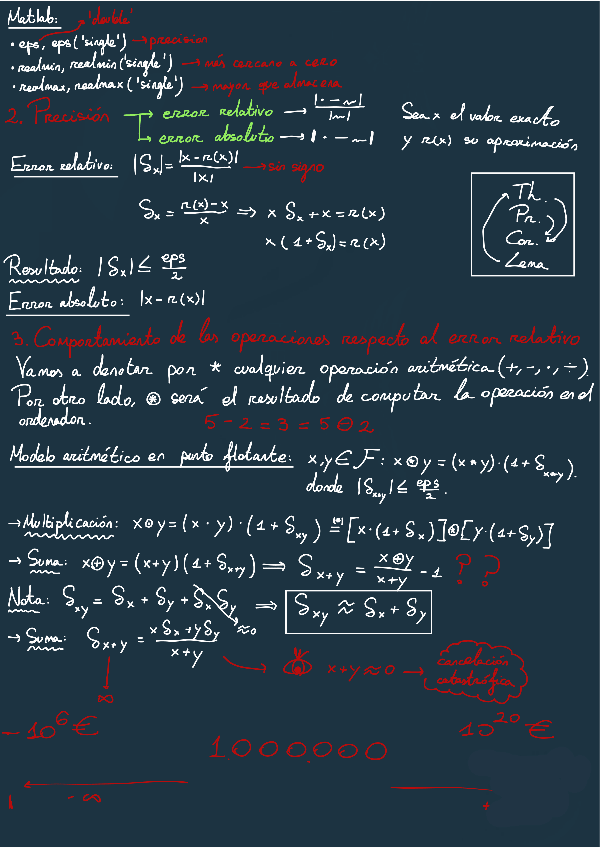 Matlab: 'double'
• eps, eps('single') → precision
• realmin, realmin('single') → más cercano a cero
• realmax, realmax('single') → mayor que almacena
2. Precisión → error relativo → |·-~|/|~|
→ error absoluto → |·-~|
Sea x el valor exacto
y r(x) su aproximación
Error relativo: |δx| = |x-r(x)|/|x| → sin signo
δx = r(x)-x/x ⇒ x δx + x = r(x)
x(1+δx) = r(x)
Th.
Pr.
Cor.
Lema
Resultado: |δx| ≤ eps/2
Error absoluto: |x-r(x)|
3. Comportamiento de las operaciones respecto al error relativo
Vamos a denotar por * cualquier operación aritmética (+,-,·,÷)
Por otro lado, ⊛ será el resultado de computar la operación en el
ordenador. 5-2=3=5⊖2
Modelo aritmético en punto flotante: x,y ∈ F: x⊛y = (x*y)·(1+δx*y).
donde |δx*y| ≤ eps/2.
→ Multiplicación: x⊙y = (x·y)·(1+δxy) = [x·(1+δx)]⊛[y·(1+δy)]
→ Suma: x⊕y = (x+y)(1+δx+y) ⇒ δx+y = x⊕y/x+y - 1 ? ?
Nota: δxy = δx + δy + δx δy ≈0 ⇒ δxy ≈ δx + δy
→ Suma: δx+y = xδx+yδy/x+y
x+y≈0 → cancelación
catastrófica
∞
-10⁶€
10²⁰€
1000000
-∞
+